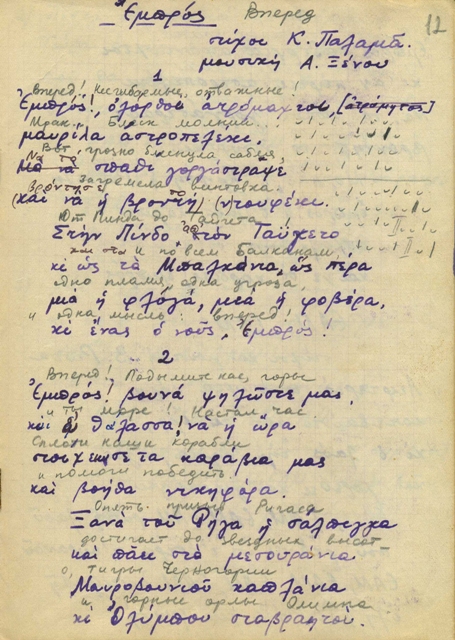 Ἐμπρός Вперед
12
στίχοι Κ. Παλαμᾶ.
μουσική Α. Ξένου
1
Вперед! отважные!
Ἐμπρός!, ὁλόρθοι
Мрак. Блеск молнии..
μαυρίλα ἀστροπελέκι.
Вот, грозно блеснула сабля,
Νὰ τὸ σπαθὶ γοργάστραψε
Загремела винтовка.
βρόντησε
(καὶ νὰ ἡ βροντή) ντουφέκι.
От Пинда до Тайгета
Στὴν Πίνδο στὸν Ταΰγετο
и по всем Балканам,
κι ὡς τὰ Μπαλκάνια, ὡς πέρα
одно пламя, одна угроза,
μιὰ ἡ φλόγα, μιὰ ἡ φοβέρα,
и одна мысль: вперед!
κι ἕνας ὁ νοῦς, Ἐμπρός!
2
Вперед! Подымите нас, горы
Ἐμπρός! βουνὰ ψηλῶστε μας,
и ты море! Настал час
καὶ θάλασσα! νὰ ἡ ὥρα
Сплоти наши корабли
στοίχειωσε τὰ καράβια μας
и помоги победить!
καὶ βοήθα νικηφόρα.
Опять призыв Ригаса
Ξανὰ τοῦ Ρήγα ἡ σάλπιγκα
достигает до звездных высот
καὶ πάει στὰ μεσουράνια
о, тигры Черногории
Μαυροβουνιοῦ καπλάνια
и горные орлы Олимпа
κι Ὀλύμπου σταυραητοί.